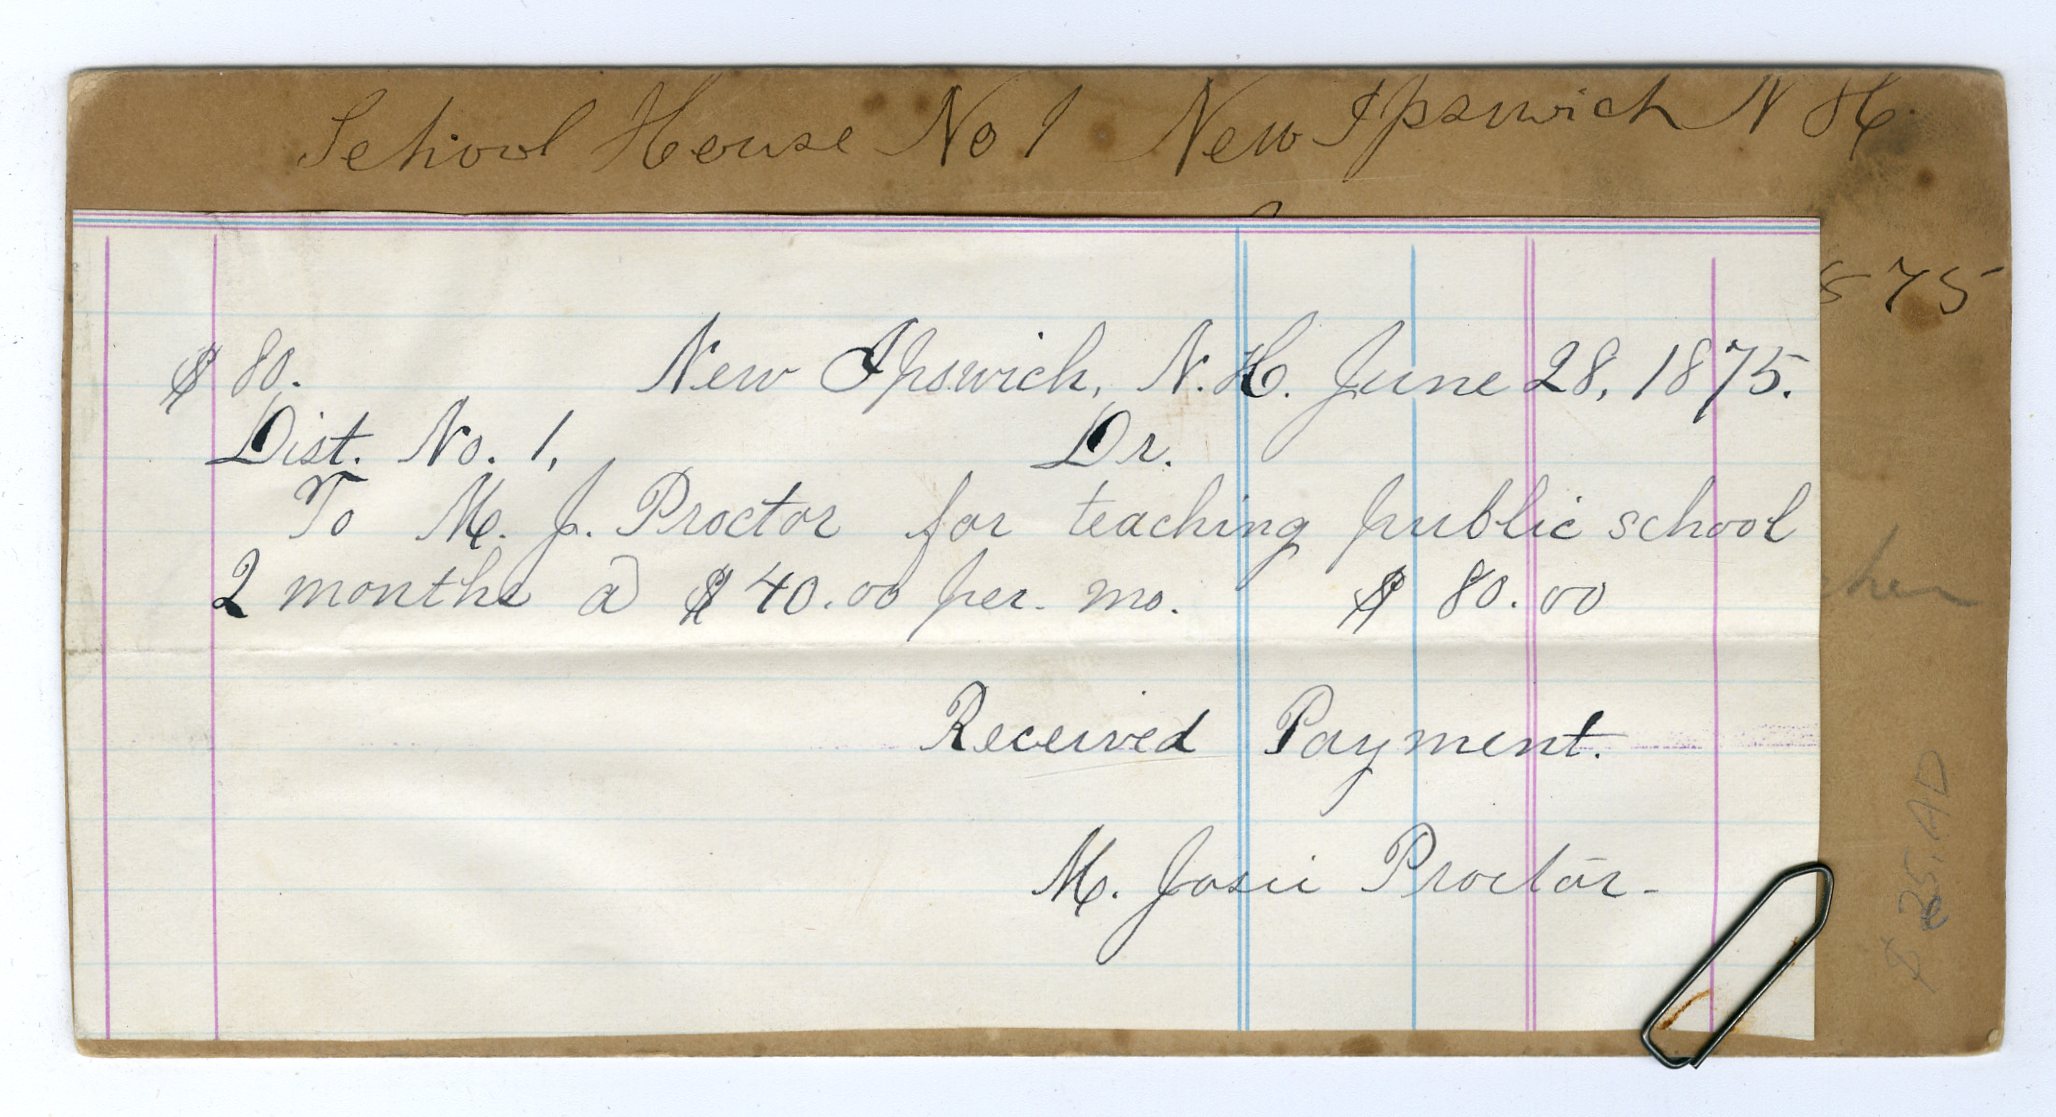 School House No 1 New Ipswich N H.
875
$ 80. New Ipswich, N.H. June 28, 1875.
Dist. No. 1, Dr.
To M. J. Proctor for teaching public school
2 months @ $ 40.00 per. mo. $ 80.00
Received Payment.
M. Josie Proctor-